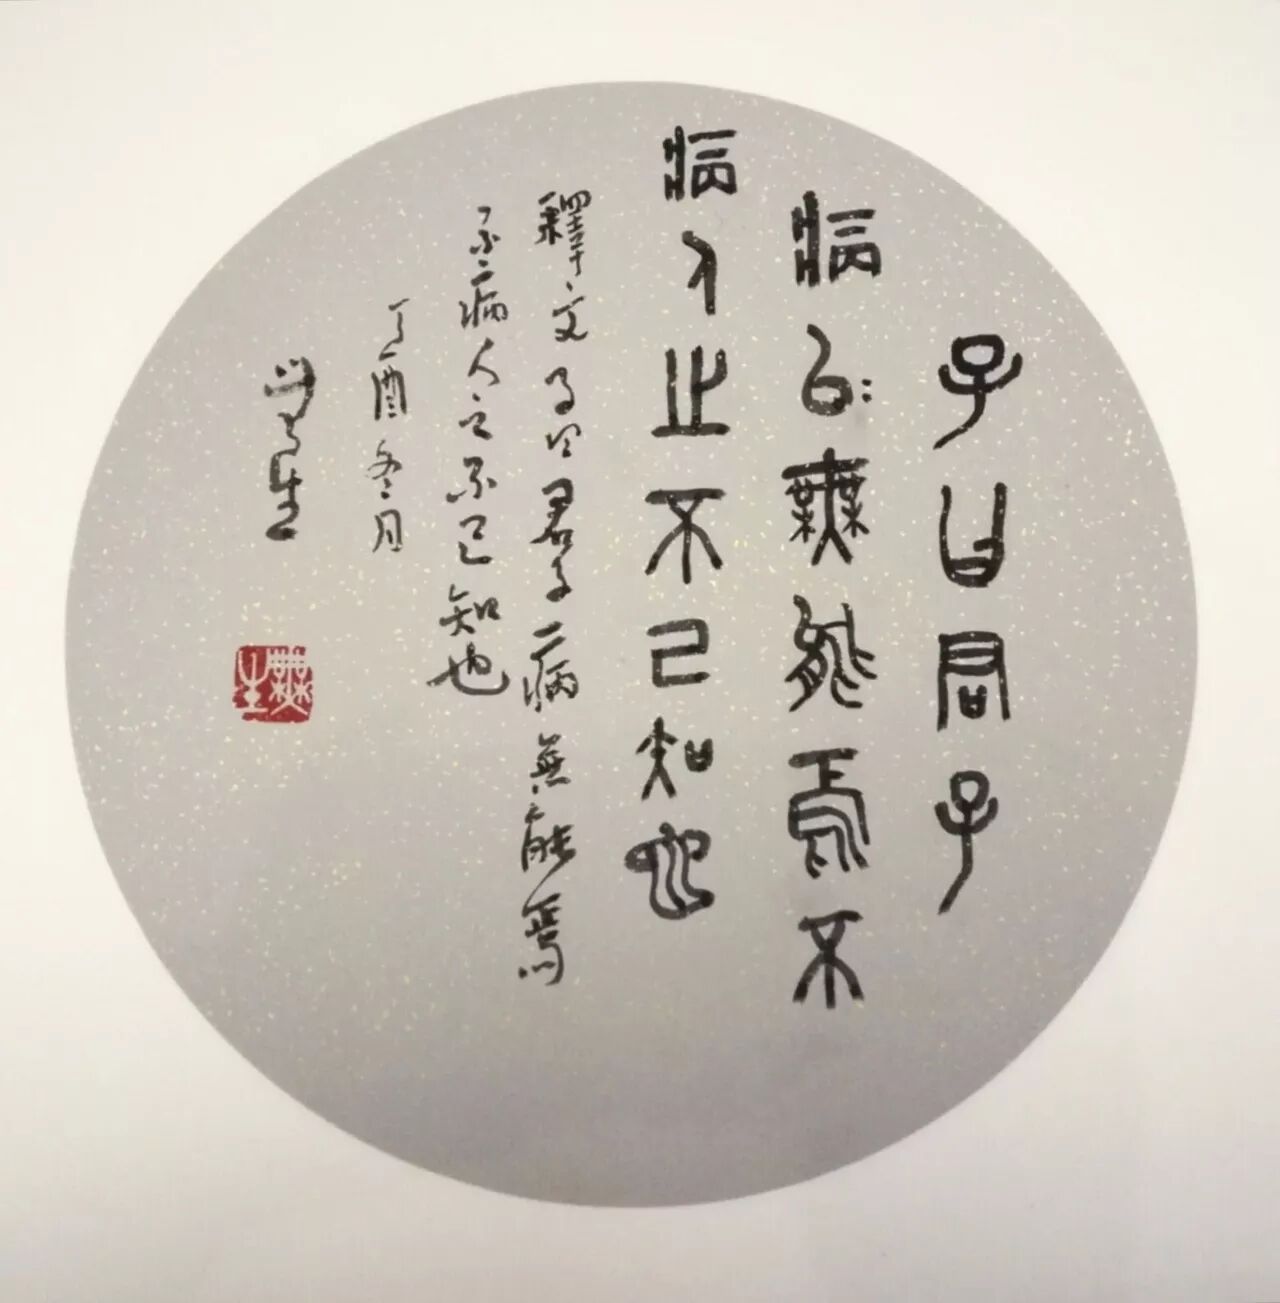 子曰君子
病無能焉不
病人之不己知也
釋文子曰君子病無能焉
不病人之不己知也
丁酉冬月
無生